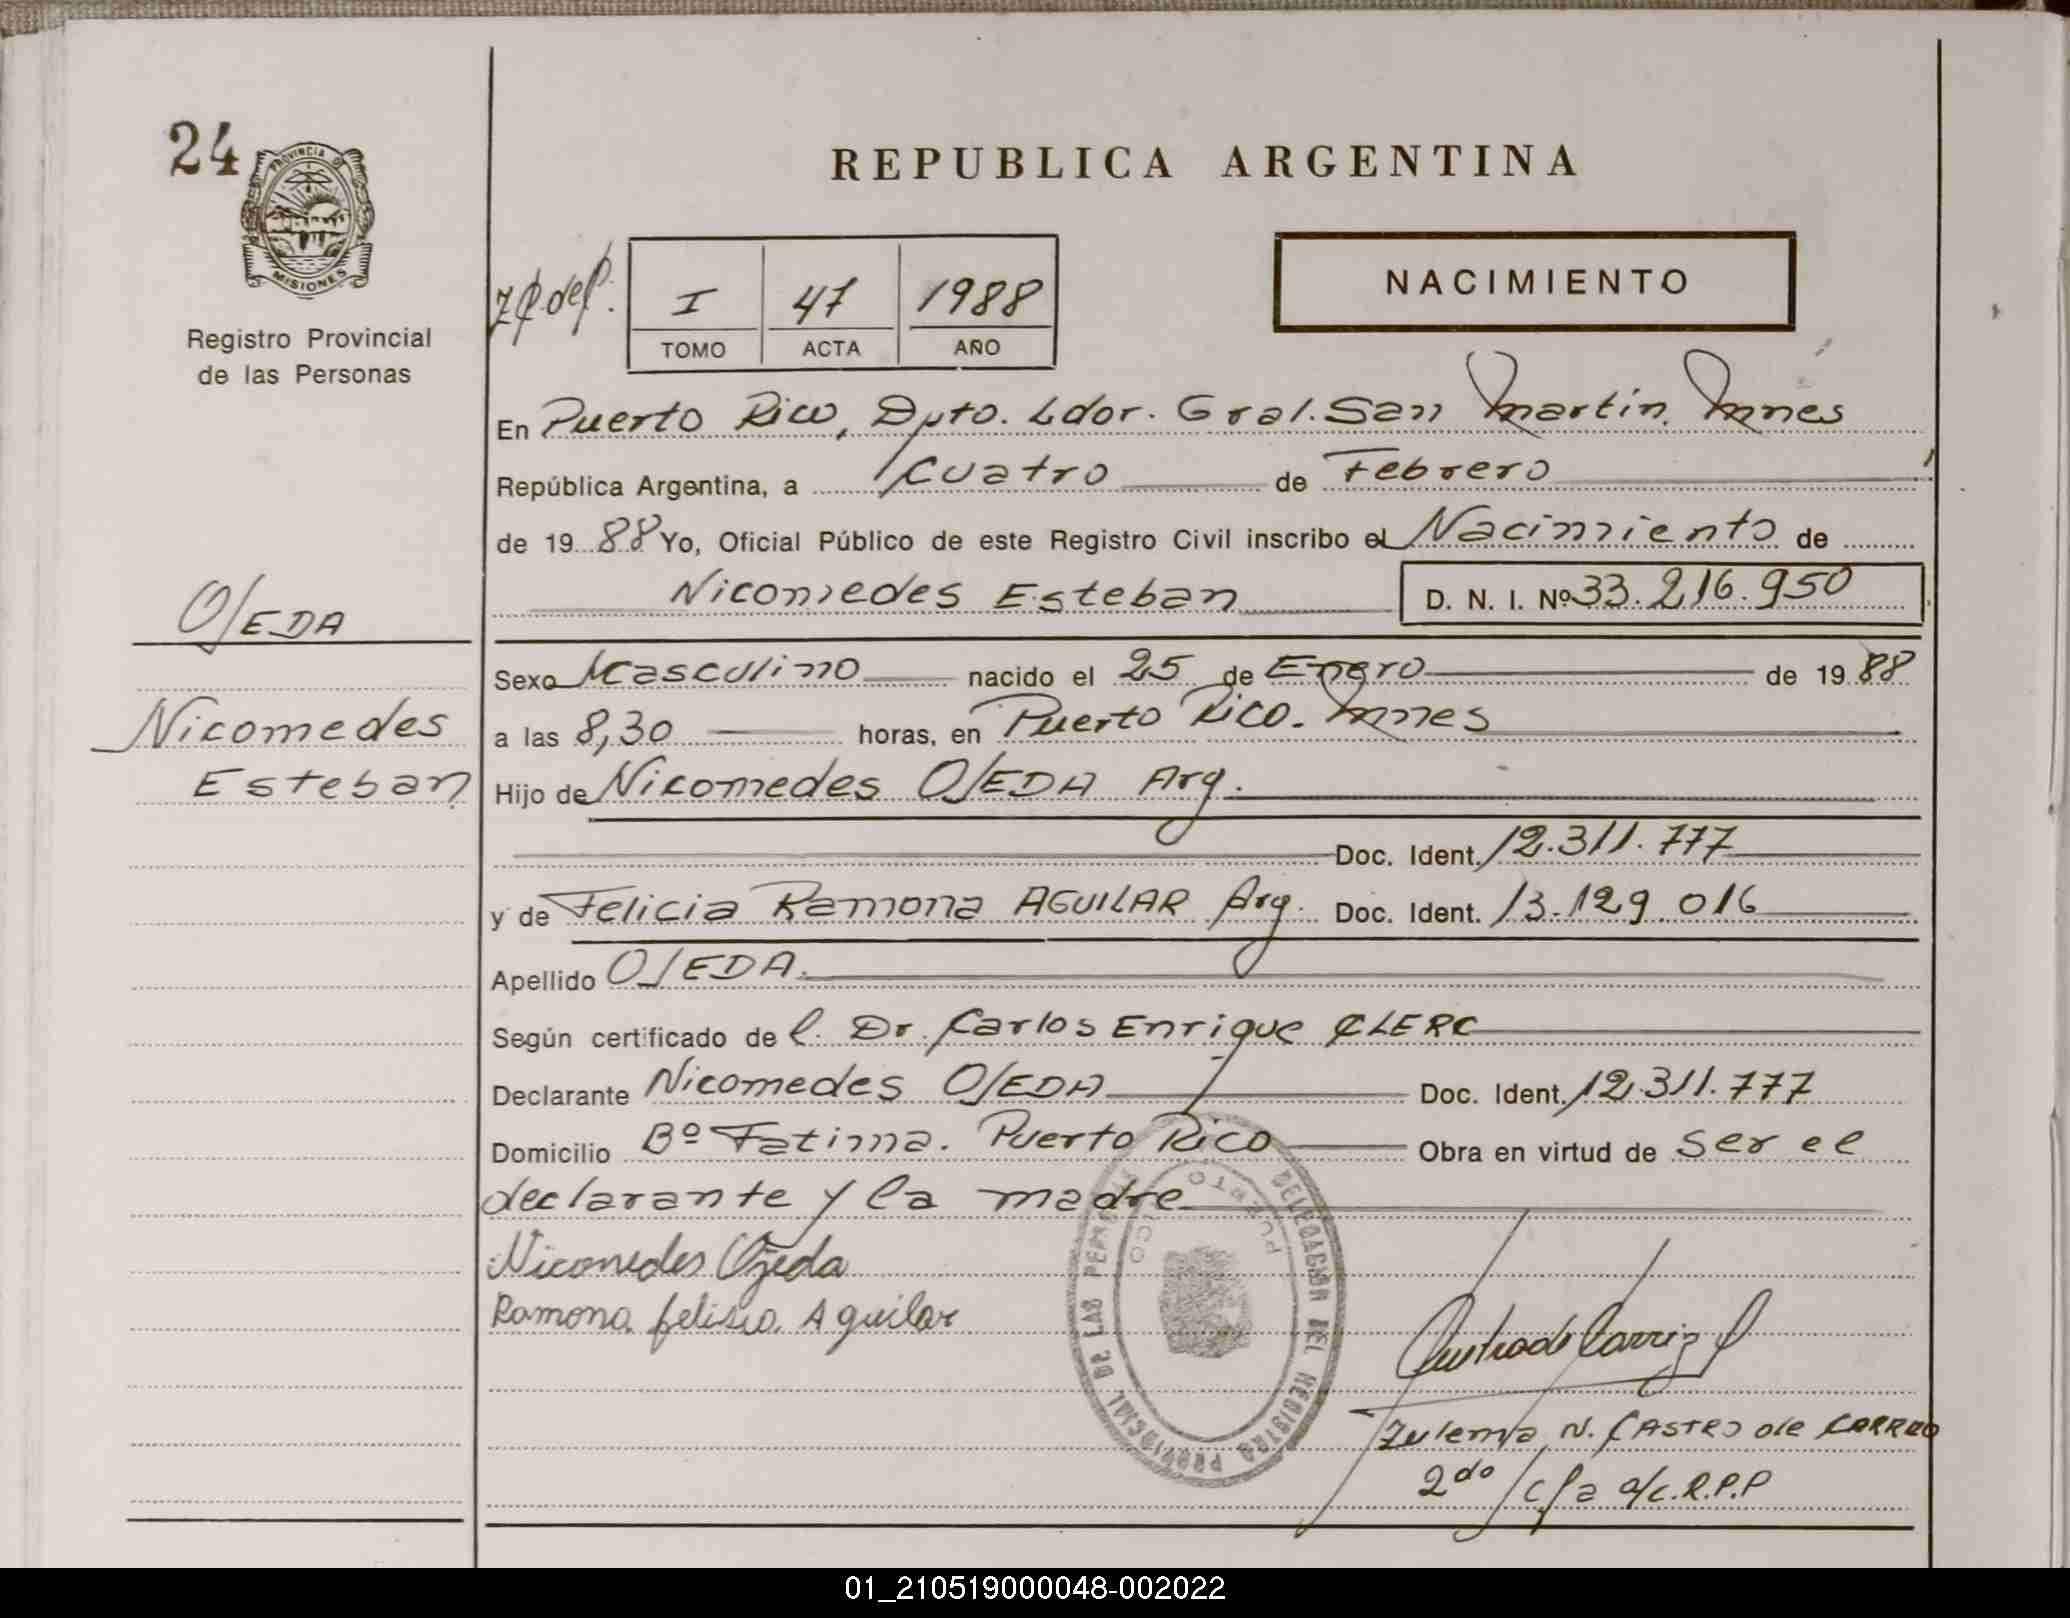 24
PROVINCIA DE
MISIONES
Registro Provincial
de las Personas
REPUBLICA ARGENTINA
I 47 1988
TOMO ACTA AÑO
NACIMIENTO
En Puerto Rico, Dpto. Ldor. Gral. San Martín. Mnes
República Argentina, a cuatro de Febrero
de 1988 Yo, Oficial Público de este Registro Civil inscribo el Nacimiento de
Nicomedes Esteban D. N. I. Nº 33.216.950
OJEDA
Nicomedes
Esteban
Sexo Masculino nacido el 25 de Enero de 1988
a las 8,30 horas, en Puerto Rico. Mnes
Hijo de Nicomedes OJEDA Arg.
Doc. Ident. 12.311.777
y de Felicia Ramona AGUILAR Arg. Doc. Ident. 13.129.016
Apellido OJEDA.
Según certificado del. Dr. Carlos Enrique CLERC
Declarante Nicomedes OJEDA Doc. Ident. 12.311.777
Domicilio Bº Fatima. Puerto Rico Obra en virtud de ser el
declarante y la madre
Nicomedes Ojeda
Ramona felisia. Aguilar
DELEGACION DEL REGISTRO PROVINCIAL DE LAS PERSONAS
PUERTO RICO
Zulema N. CASTRO de CARRIZO
2do
01_210519000048-002022